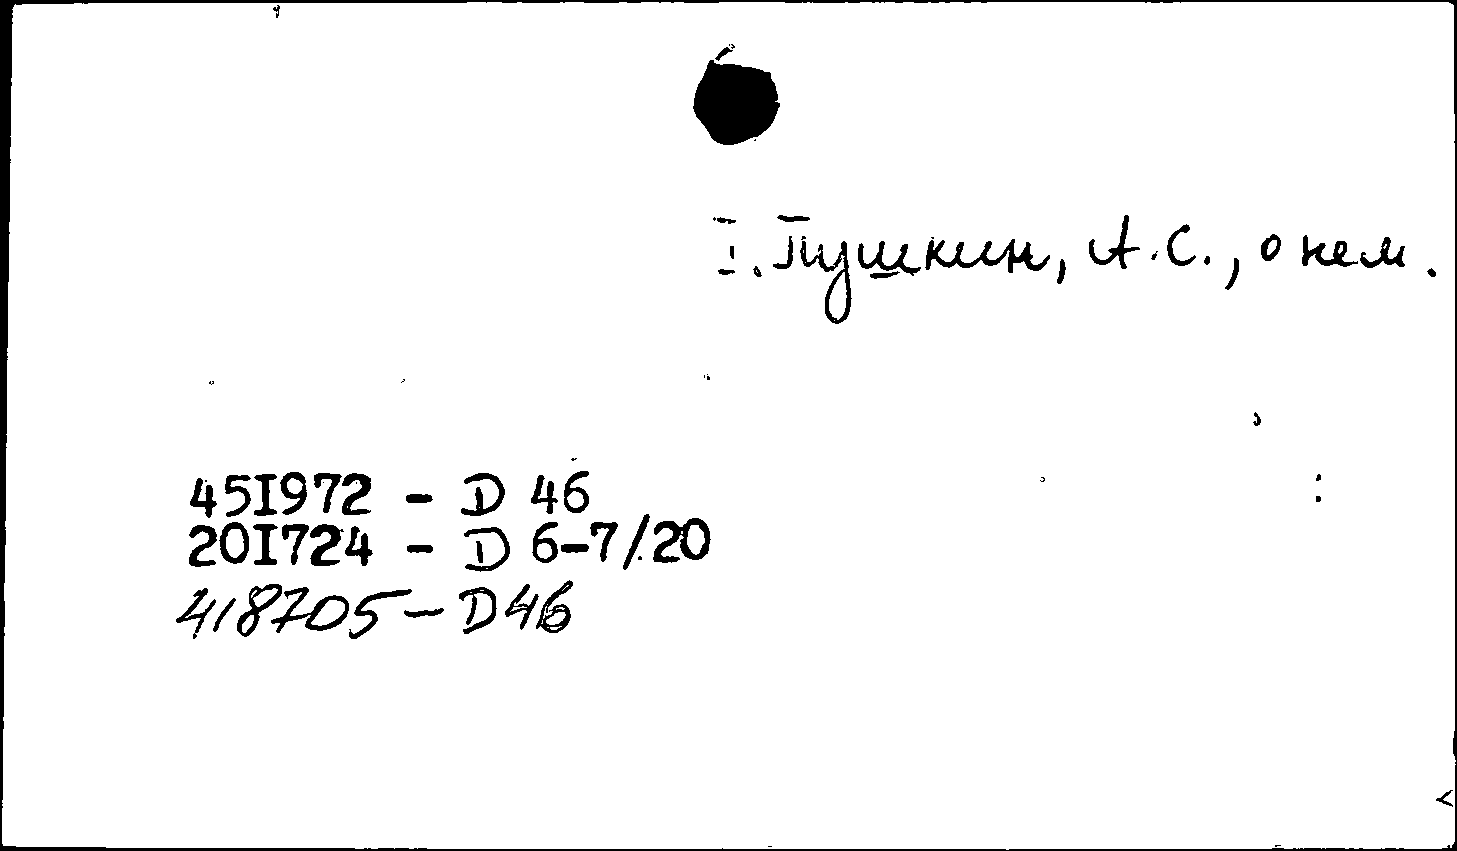 I. Пушкин, А.С., о нем.
45I972 - D 46
20I724 - D 6-7/20
418705 - D46